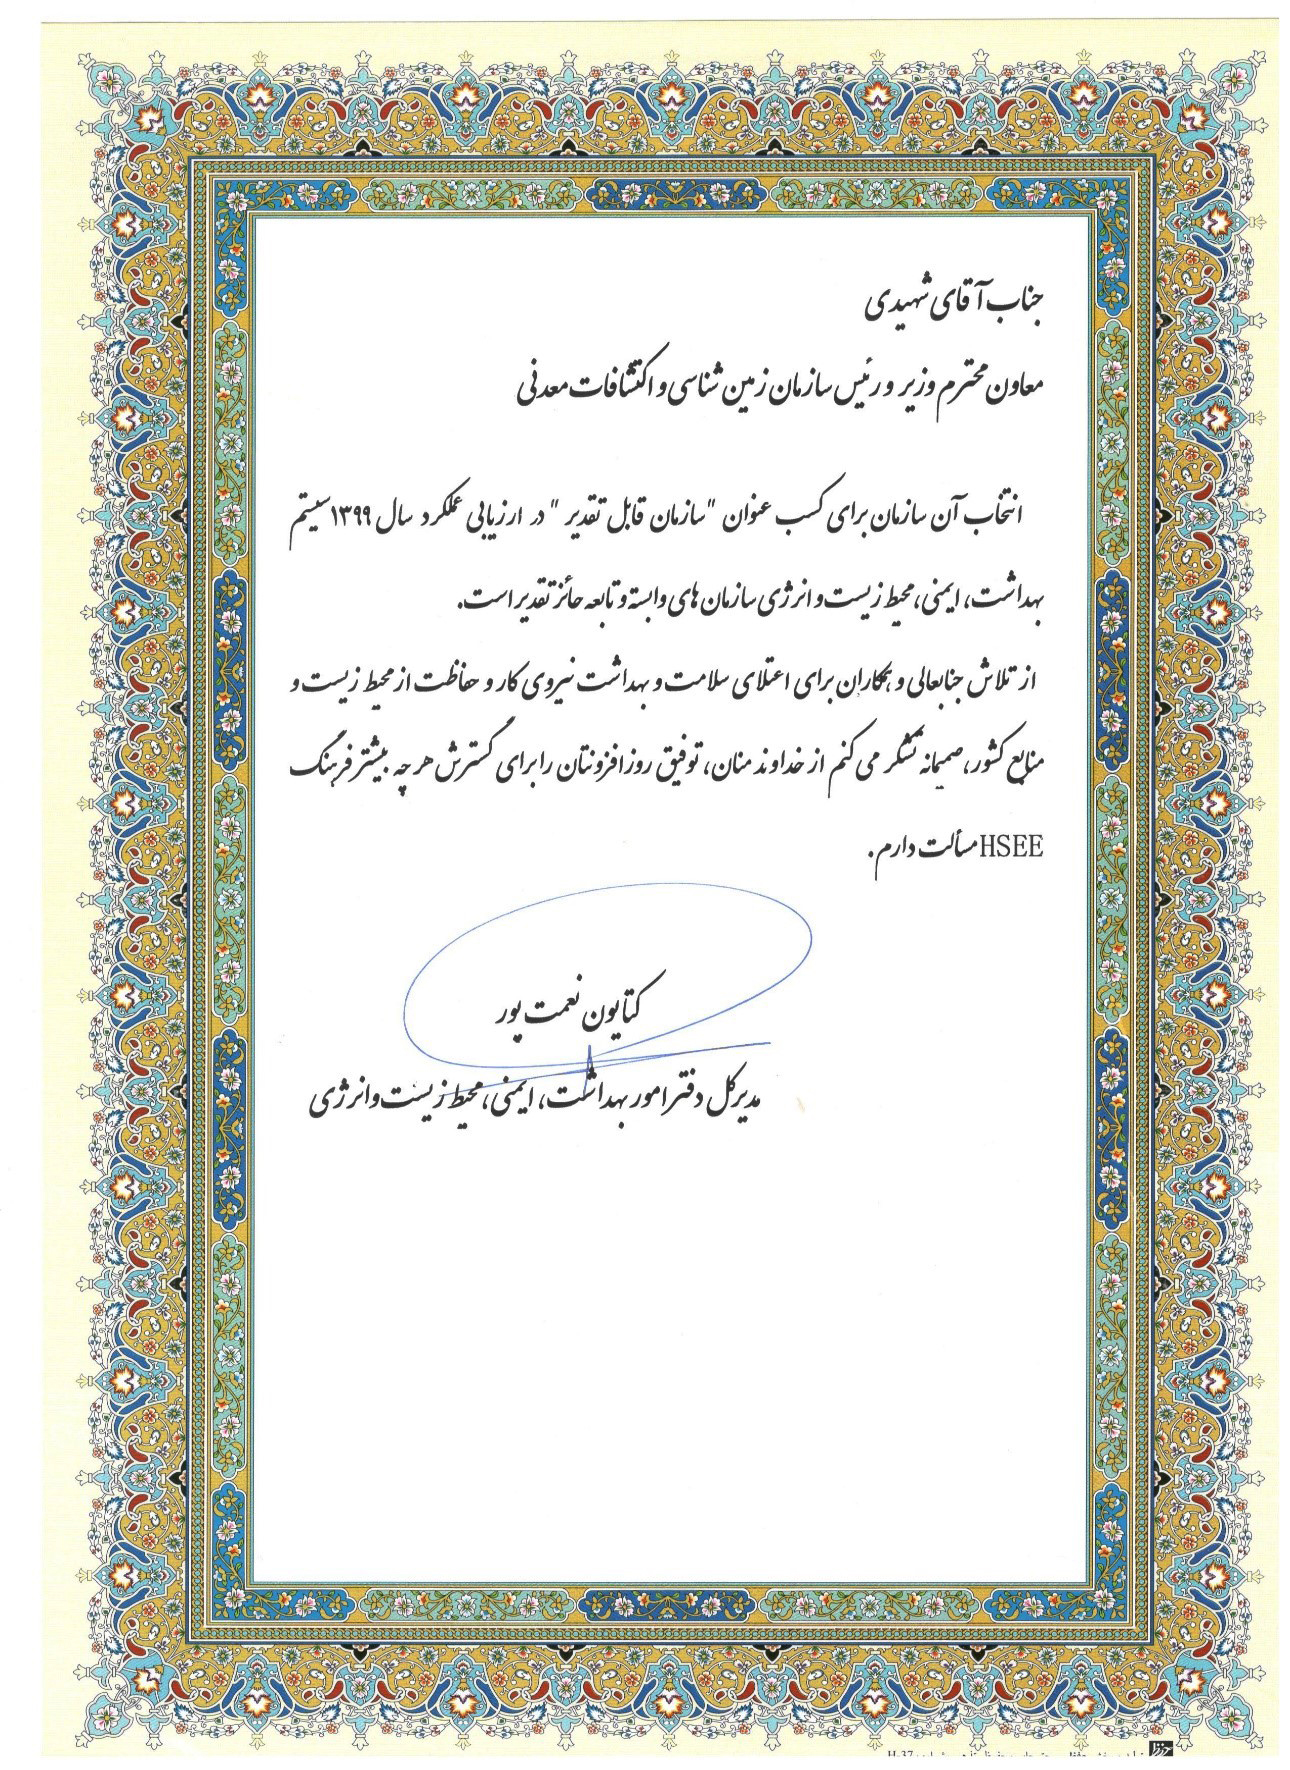 جناب آقای شهیدی
معاون محترم وزیر و رئیس سازمان زمین شناسی و اکتشافات معدنی
انتخاب آن سازمان برای کسب عنوان "سازمان قابل تقدیر" در ارزیابی عملکرد سال ۱۳۹۹ سیستم
بهداشت، ایمنی، محیط زیست و انرژی سازمان های وابسته و تابعه حائز تقدیر است.
از تلاش جنابعالی و همکاران برای اعتلای سلامت و بهداشت نیروی کار و حفاظت از محیط زیست و
منابع کشور، صمیمانه تشکر می کنم از خداوند منان، توفیق روزافزونتان را برای گسترش هر چه بیشتر فرهنگ
HSEE مسألت دارم.
کتایون نعمت پور
مدیرکل دفتر امور بهداشت، ایمنی، محیط زیست و انرژی